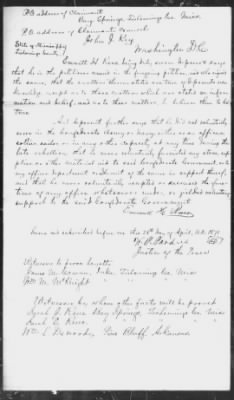 P.O. address of Claimant
Bay Springs, Tishomingo Co. Miss.
P.O. address of Claimant's counsel
John J. Key
Washington D.C.
State of Mississippi
Tishomingo County
being duly sworn deposes & says
that he is the petitioner named in the foregoing petition, and who signed
the same, that the matters therein stated are true of deponent's own
knowledge except as to those matters which are stated on infor-
mation and belief, and as to those matters, he believes them to be
true.
And deponent further says that he did not voluntarily
serve in the Confederate Army or Navy, either as an officer
soldier or sailor or in any other capacity, at any time during the
late rebellion, that he never voluntarily furnished any stores, sup-
plies or other material aid to said Confederate Government, or to
any officer, department or adherent of the same in support thereof,
and that he never voluntarily accepted or exercised the func-
tions of any office whatsoever under, or yielded voluntary
support to the said Confederate Government.
Sworn and subscribed before me this 28th day of April, A.D. 1871
Justice of the Peace
Witnesses to prove loyalty
James M.
Tishomingo Co. Miss
Wm. M. McKnight
Witnesses by whom other facts will be proved
Bay Springs, Tishomingo Co. Miss
Sarah
Pine Bluff Arkansas